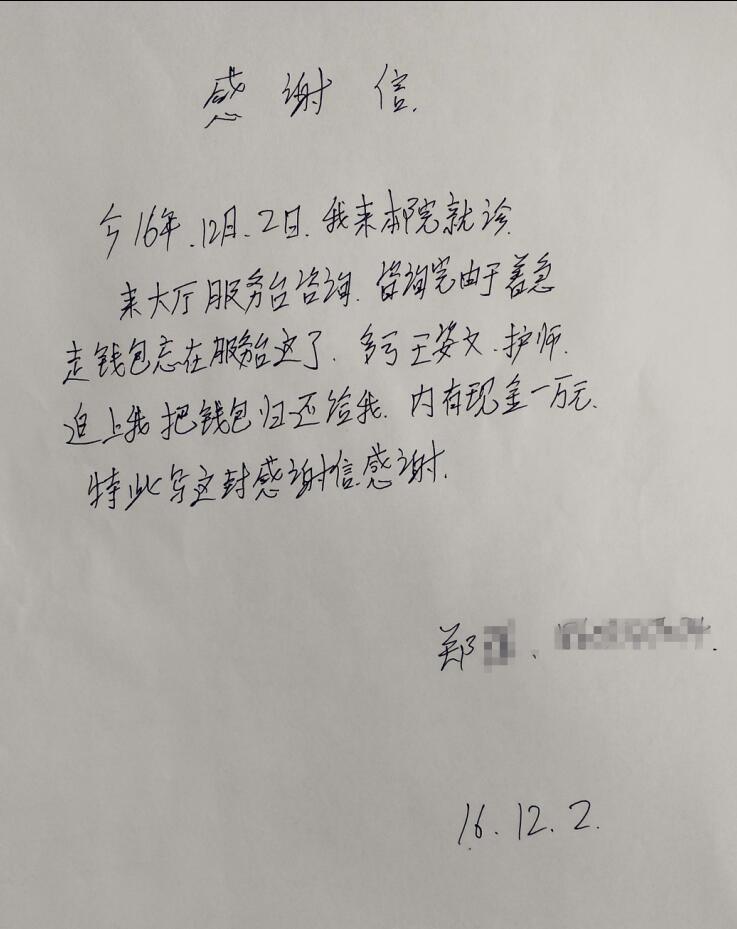 感谢信.
今16年.12月.2日.我来本院就诊.
来大厅服务台咨询.咨询完由于着急
走钱包忘在服务台这了.多亏王姿文.护师.
追上我把钱包归还给我.内有现金一万元.
特此写这封感谢信感谢.
郑
16.12.2.